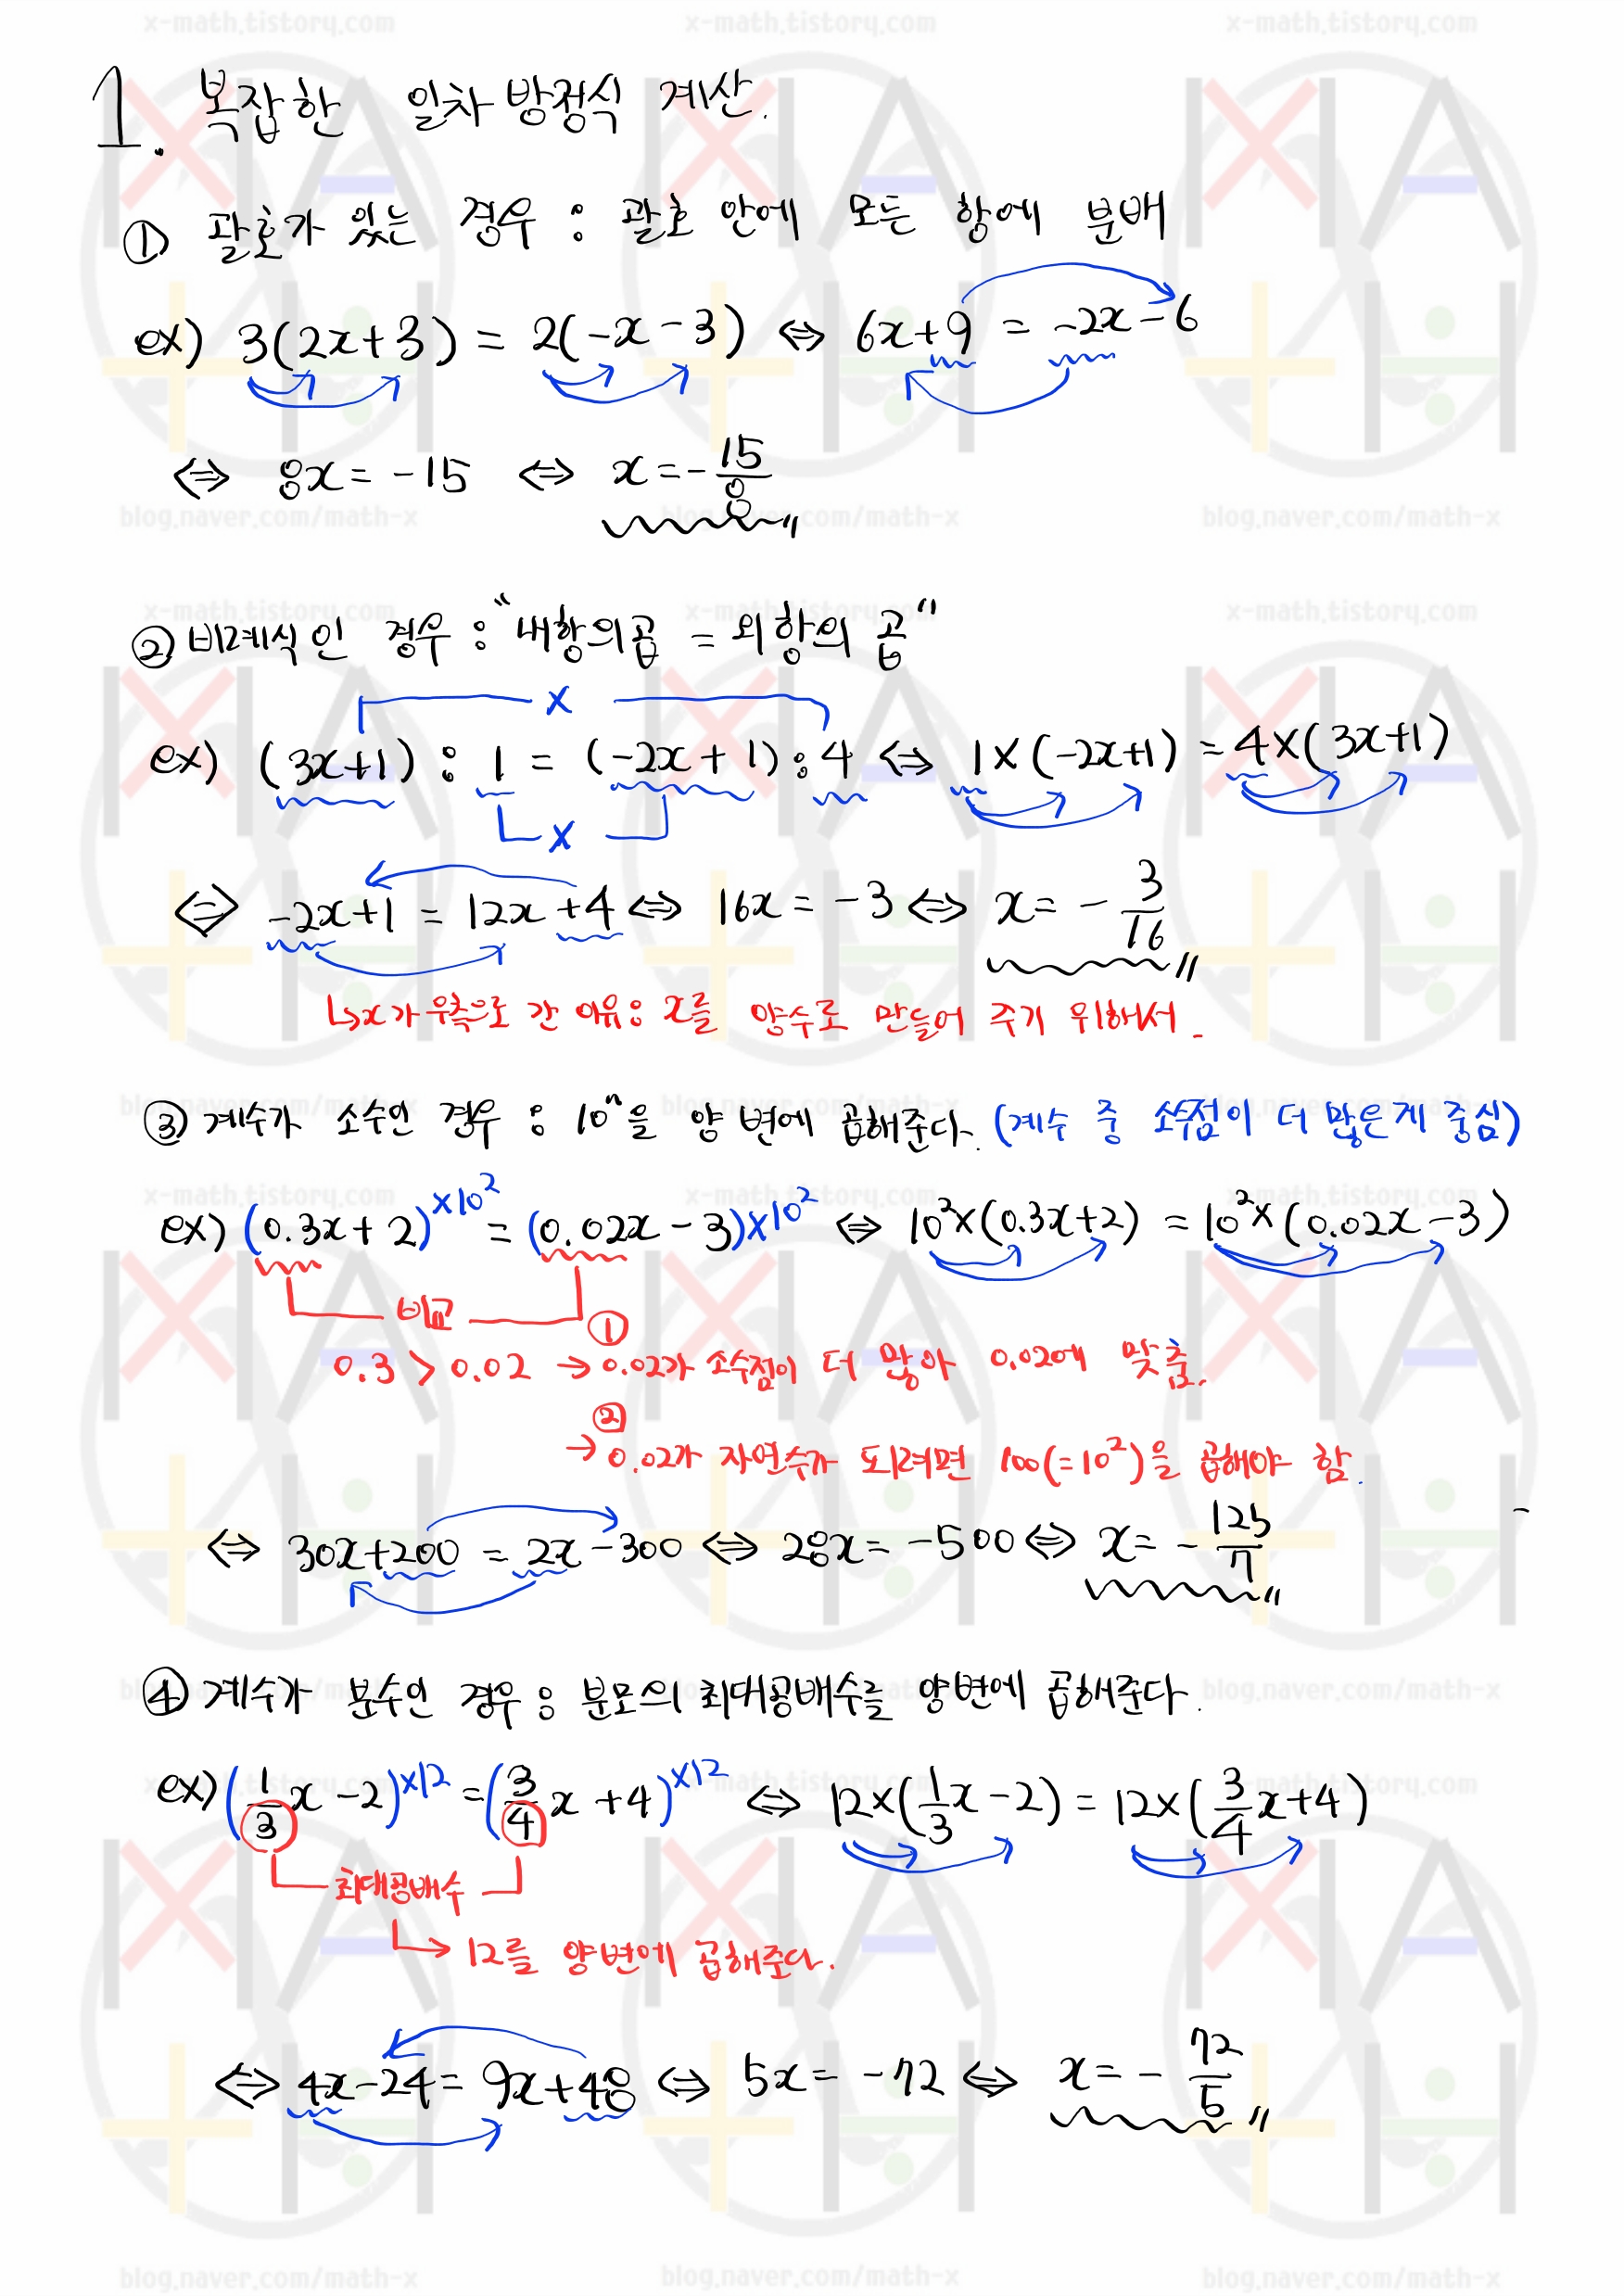 x-math.tistory.com x-math.tistory.com x-math.tistory.com
1. 복잡한 일차방정식 계산.
① 괄호가 있는 경우 : 괄호 안에 모든 항에 분배
ex) 3(2x+3) = 2(-x-3) ⇔ 6x+9 = -2x-6
⇔ 8x = -15 ⇔ x = -15/8
blog.naver.com/math-x blog.naver.com/math-x blog.naver.com/math-x
x-math.tistory.com x-math.tistory.com x-math.tistory.com
② 비례식인 경우 : "내항의곱 = 외항의 곱"
×
ex) (3x+1) : 1 = (-2x+1) : 4 ⇔ 1×(-2x+1) = 4×(3x+1)
×
⇔ -2x+1 = 12x+4 ⇔ 16x = -3 ⇔ x = -3/16
↳x가 우측으로 간 이유: x를 양수로 만들어 주기 위해서.
blog.naver.com/math-x blog.naver.com/math-x blog.naver.com/math-x
③ 계수가 소수인 경우 : 10ⁿ을 양 변에 곱해준다. (계수 중 소수점이 더 많은게 중심)
x-math.tistory.com x-math.tistory.com x-math.tistory.com
ex) (0.3x+2)×10² = (0.02x-3)×10² ⇔ 10²×(0.3x+2) = 10²×(0.02x-3)
비교
0.3 > 0.02 → ① 0.02가 소수점이 더 많아 0.02에 맞춤.
→ ② 0.02가 자연수가 되려면 100(=10²)을 곱해야 함.
⇔ 30x+200 = 2x-300 ⇔ 28x = -500 ⇔ x = -125/7
④ 계수가 분수인 경우 : 분모의 최대공배수를 양변에 곱해준다.
blog.naver.com/math-x blog.naver.com/math-x blog.naver.com/math-x
x-math.tistory.com x-math.tistory.com x-math.tistory.com
ex) (1/3x-2)×12 = (3/4x+4)×12 ⇔ 12×(1/3x-2) = 12×(3/4x+4)
최대공배수
↳ 12를 양변에 곱해준다.
⇔ 4x-24 = 9x+48 ⇔ 5x = -72 ⇔ x = -72/5
blog.naver.com/math-x blog.naver.com/math-x blog.naver.com/math-x